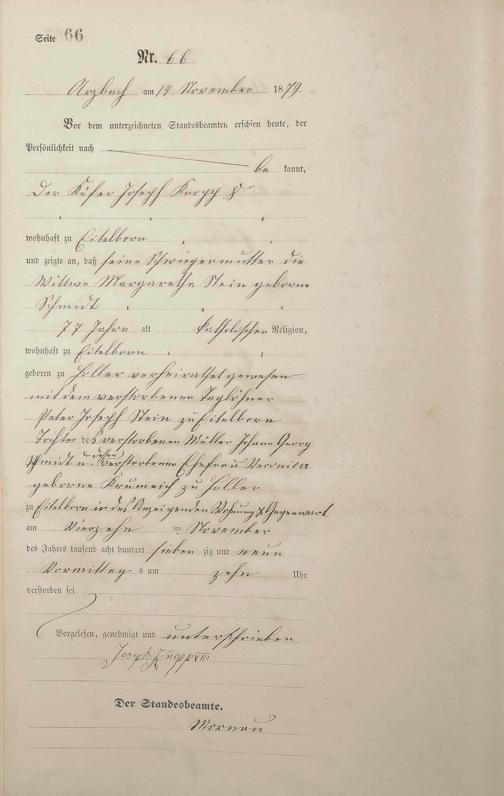 Seite 66
Nr. 66
Arzbach am 14 November 1879
Vor dem unterzeichneten Standesbeamten erschien heute, der
Persönlichkeit nach
be kannt,
Der Küfer Joseph Knopp 8
wohnhaft zu Eitelborn
und zeigte an, daß seine Schwiegermutter die
Wittwe Margaretha Stein geborne
Schmidt
77 Jahre alt katholischer Religion,
wohnhaft zu Eitelborn
geboren zu Holler verheirathet gewesen
mit dem verstorbenen Taglöhner
Peter Joseph Stein zu Eitelborn
Tochter des verstorbenen Müller Johann Georg
Schmidt u. dessen verstorbenen Ehefrau Veronica
geborne Krumeich zu Holler
zu Eitelborn in des Anzeigenden Wohnung & Gegenwart
am vierzehn ten November
des Jahres tausend acht hundert sieben zig und neun
Vormittag s um zehn Uhr
verstorben sei
Vorgelesen, genehmigt und unterschrieben
Joseph Knopp VIII
Der Standesbeamte.